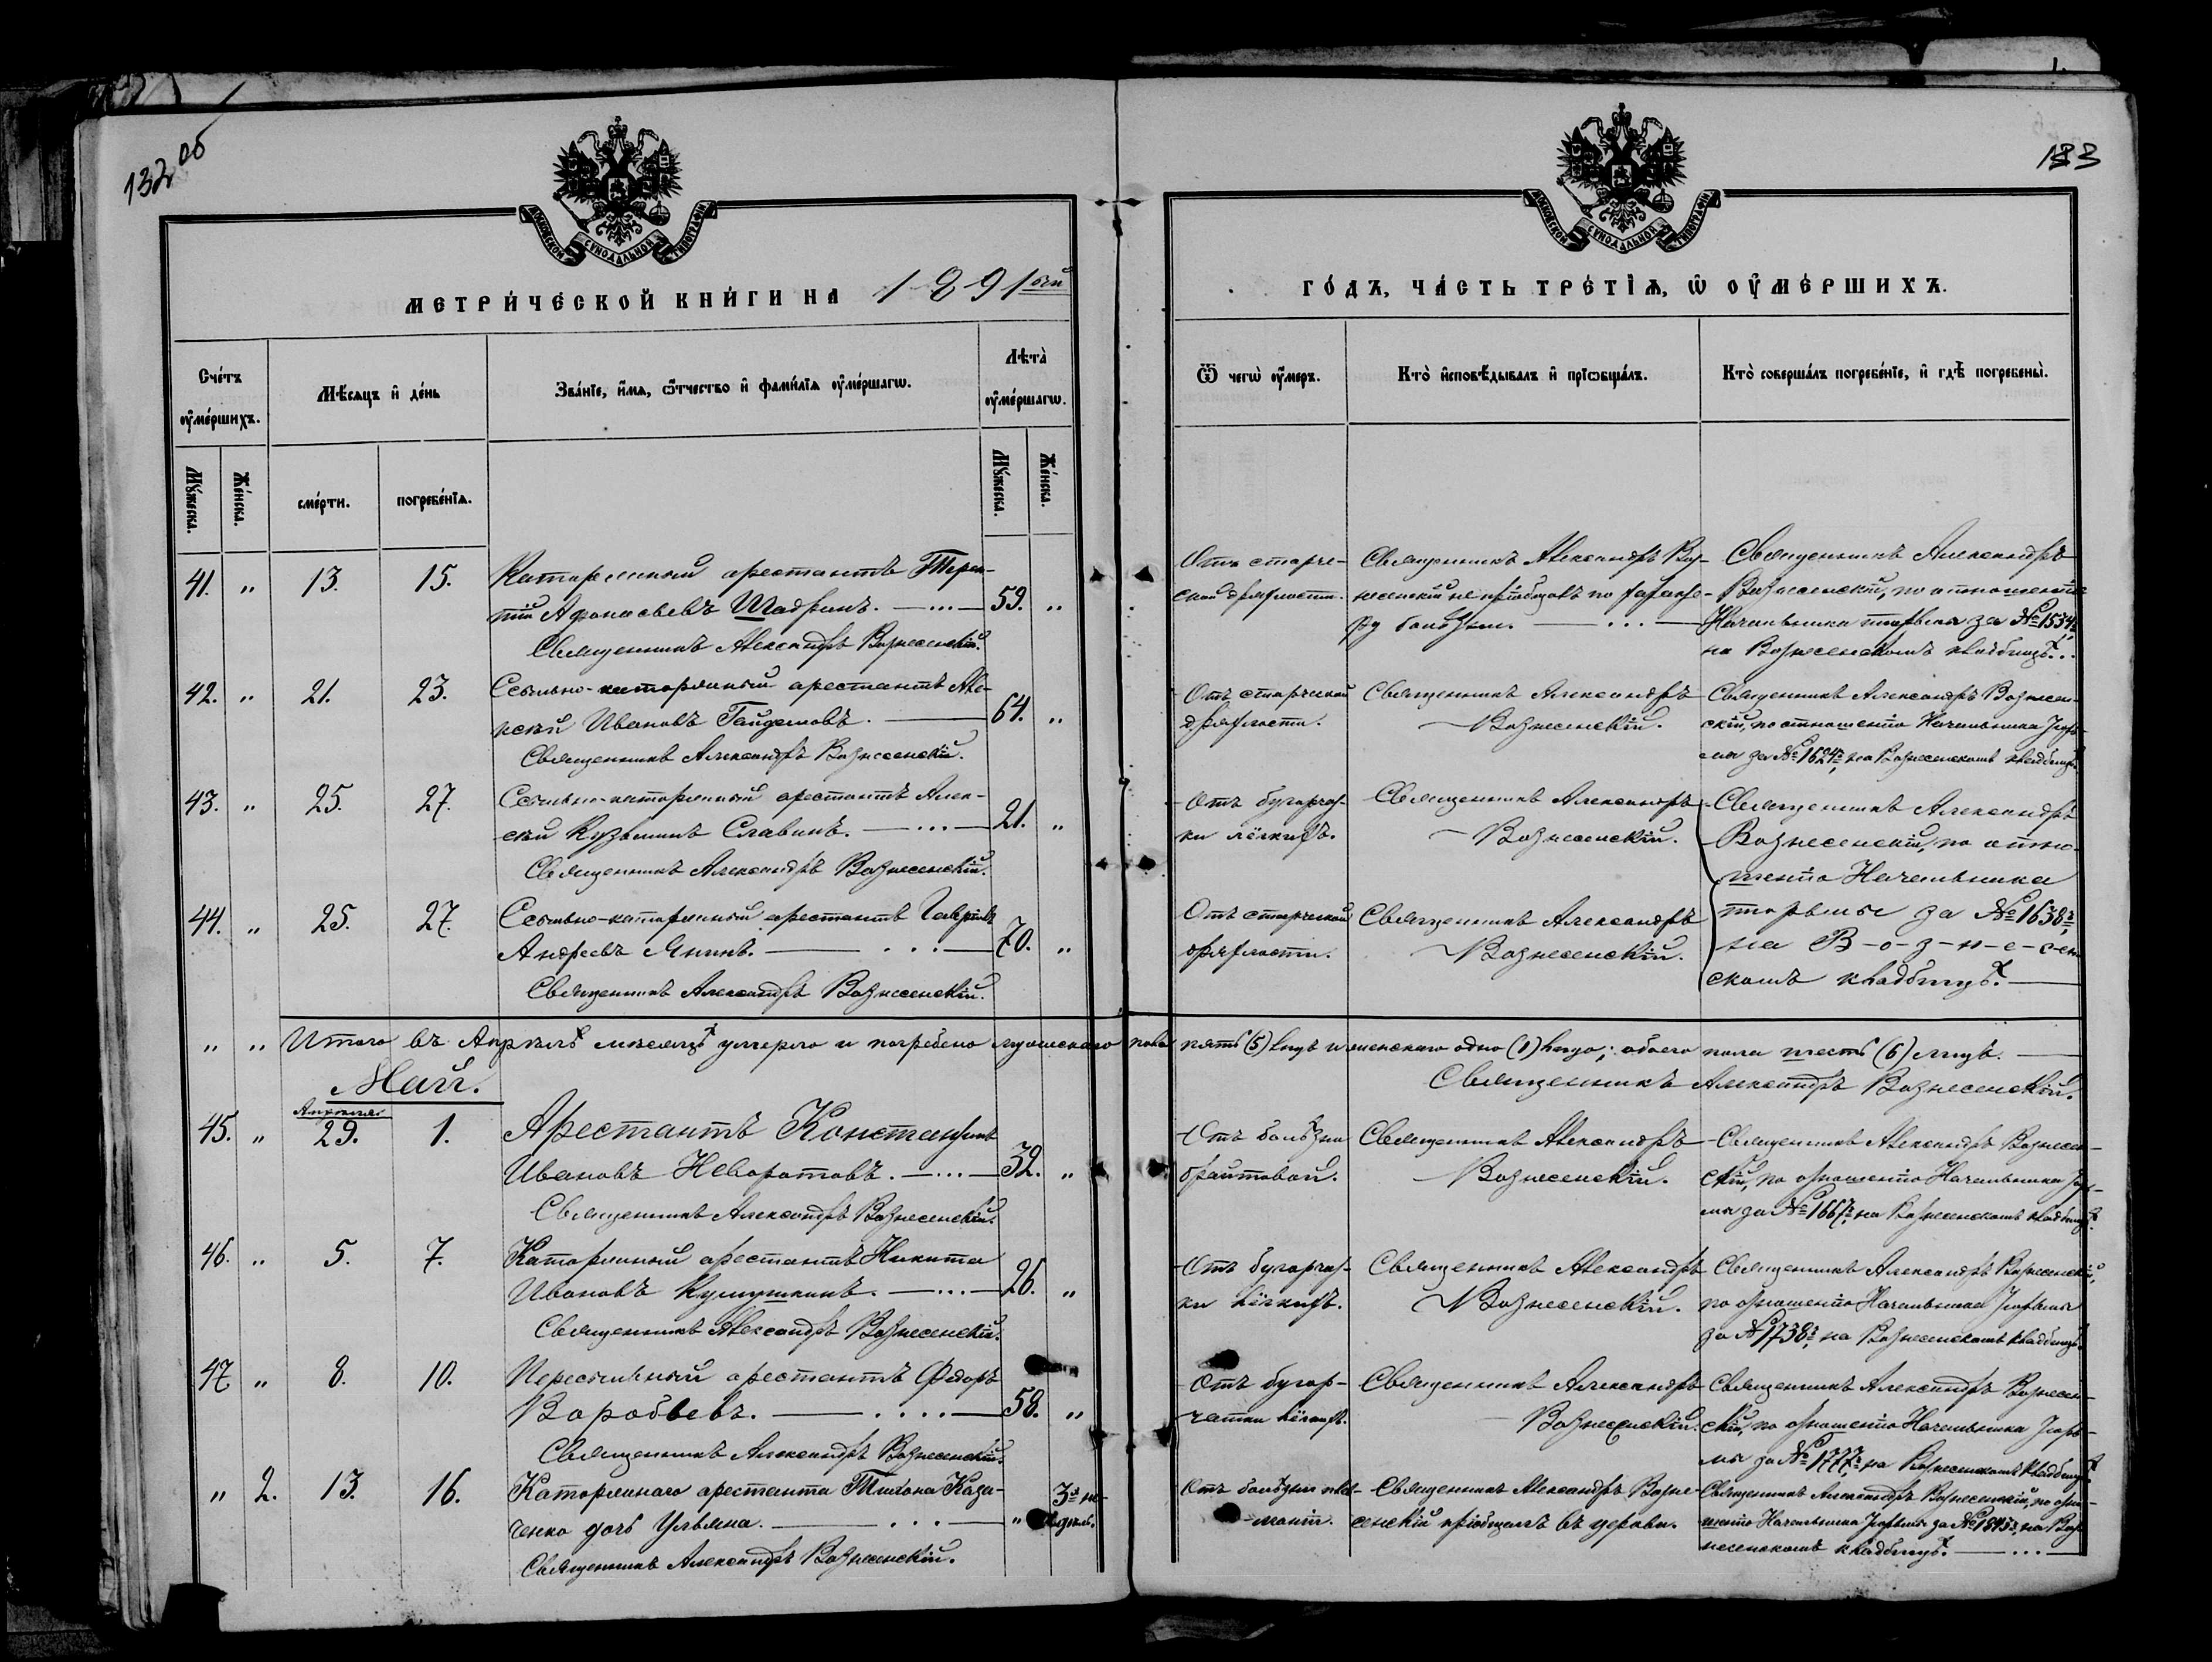 132 об
133
МОСКОВСКОЙ СѴНОДАЛЬНОЙ ТИПОГРАФІИ
МОСКОВСКОЙ СѴНОДАЛЬНОЙ ТИПОГРАФІИ
МЕТРИ́ЧЕСКОЙ КНИ́ГИ НА 1891ый
ГО́ДЪ, ЧА́СТЬ ТРЕ́ТІѦ, Ѡ҆ ОУ҆МЕ́РШИХЪ.
Сче́тъ оу҆ме́ршихъ.
Мѣ́сяцъ и҆ де́нь
Зва́ніе, и҆́мѧ, ѻ҆́тчество и҆ фами́лїѧ оу҆ме́ршагѡ.
Лѣта̀ оу҆ме́ршагѡ.
Ѿ чегѡ̀ оу҆́меръ.
Кто̀ и҆сповѣ́дывалъ и҆ прїѡбща́лъ.
Кто̀ соверша́лъ погребе́нїе, и҆ гдѣ̀ погребены̀.
Мꙋ́жеска. Же́нска. сме́рти. погребе́нїѧ. Мꙋ́жеска. Же́нска.
41. „ 13. 15. Каторжный арестантъ Терен-
тій Афанасьевъ Шадринъ. — ... — 59. „
Священникъ Александръ Вознесенскій.
Отъ старче-
ской дряхлости.
Священникъ Александръ Воз-
несенскій не пріобщалъ по
болѣзни. — ... —
Священникъ Александръ
Вознесенскій, по отношенію
Начальника тюрьмы за № 1534,
на Вознесенскомъ кладбищѣ...
42. „ 21. 23. Ссыльно-каторжный арестантъ Але-
ксѣй Ивановъ Гайдешовъ. — 64. „
Священникъ Александръ Вознесенскій.
Отъ старческой
дряхлости.
Священникъ Александръ
Вознесенскій.
Священникъ Александръ Вознесен-
скій, по отношенію Начальника тюрь-
мы за № 1624, на Вознесенскомъ кладбищѣ.
43. „ 25. 27. Ссыльно-каторжный арестантъ Алек-
сѣй Кузьминъ Славинъ. — ... — 21. „
Священникъ Александръ Вознесенскій.
Отъ бугорчат-
ки лёгкихъ.
Священникъ Александръ
Вознесенскій.
Священникъ Александръ
Вознесенскій, по отно-
шенію Начальника
тюрьмы за № 1638,
на В-о-з-н-е-с-ен
скомъ кладбищѣ. —
44. „ 25. 27. Ссыльно-каторжный арестантъ Гавріилъ
Андреевъ Янинъ. — ... — 70. „
Священникъ Александръ Вознесенскій.
Отъ старческой
дряхлости.
Священникъ Александръ
Вознесенскій.
„ „ Итого въ Апрѣлѣ мѣсяцѣ умерло и погребено мужескаго пола пять (5) лицъ и женскаго одно (1) лицо; обоего пола шесть (6) лицъ. —
Священникъ Александръ Вознесенскій.
Май.
Апрѣля
45. „ 29. 1. Арестантъ Константинъ
Ивановъ Неворотовъ. — ... — 32. „
Священникъ Александръ Вознесенскій.
Отъ болѣзни
брайтовой.
Священникъ Александръ
Вознесенскій.
Священникъ Александръ Вознесен-
скій, по отношенію Начальника тюрь-
мы за № 1667, на Вознесенскомъ кладбищѣ.
46. „ 5. 7. Каторжный арестантъ Никита
Ивановъ Кумушкинъ. — ... — 26. „
Священникъ Александръ Вознесенскій.
Отъ бугорчат-
ки лёгкихъ.
Священникъ Александръ
Вознесенскій.
Священникъ Александръ Вознесенскій,
по отношенію Начальника тюрьмы
за № 1738, на Вознесенскомъ кладбищѣ.
47. „ 8. 10. Пересыльный арестантъ Ѳедоръ
Воробьевъ. — .... — 58. „
Священникъ Александръ Вознесенскій.
Отъ бугор-
чатки лёгкихъ.
Священникъ Александръ
Вознесенскій.
Священникъ Александръ Вознесен-
скій, по отношенію Начальника тюрь-
мы за № 1777, на Вознесенскомъ кладбищѣ.
„ 2. 13. 16. Каторжнаго арестанта Тихона Каза-
ченко дочь Ульяна. — ... — „ 3хъ не-
дѣль.
Священникъ Александръ Вознесенскій.
Отъ болѣзни
Священникъ Александръ Возне-
сенскій пріобщалъ въ церкви.
Священникъ Александръ Вознесенскій, по отно-
шенію Начальника тюрьмы за № 1845, на Воз-
несенскомъ кладбищѣ. — ... —